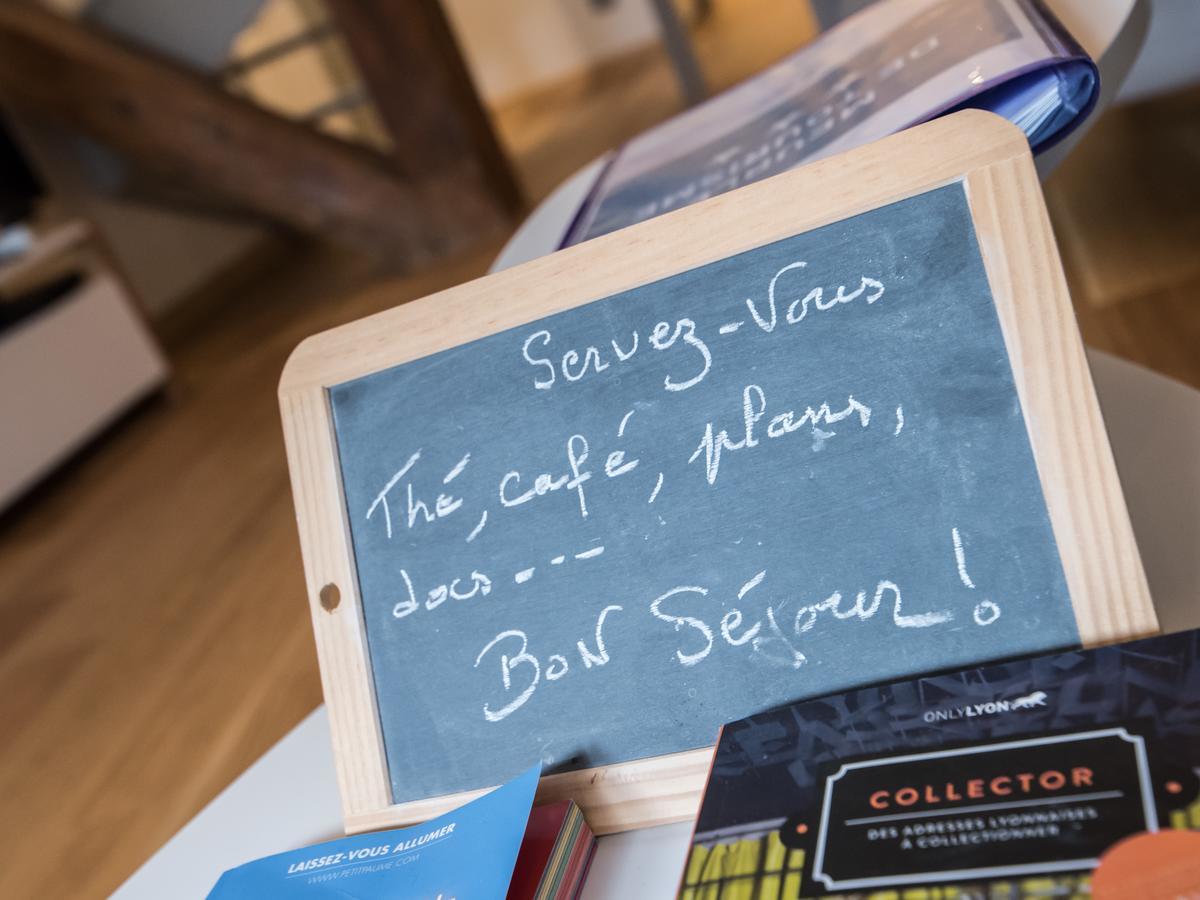 Servez-Vous
Thé, café, plans,
docs ---
BON Séjour !
ONLYLYON
COLLECTOR
DES ADRESSES LYONNAISES
À COLLECTIONNER
LAISSEZ-VOUS ALLUMER
WWW.PETITPAUME.COM